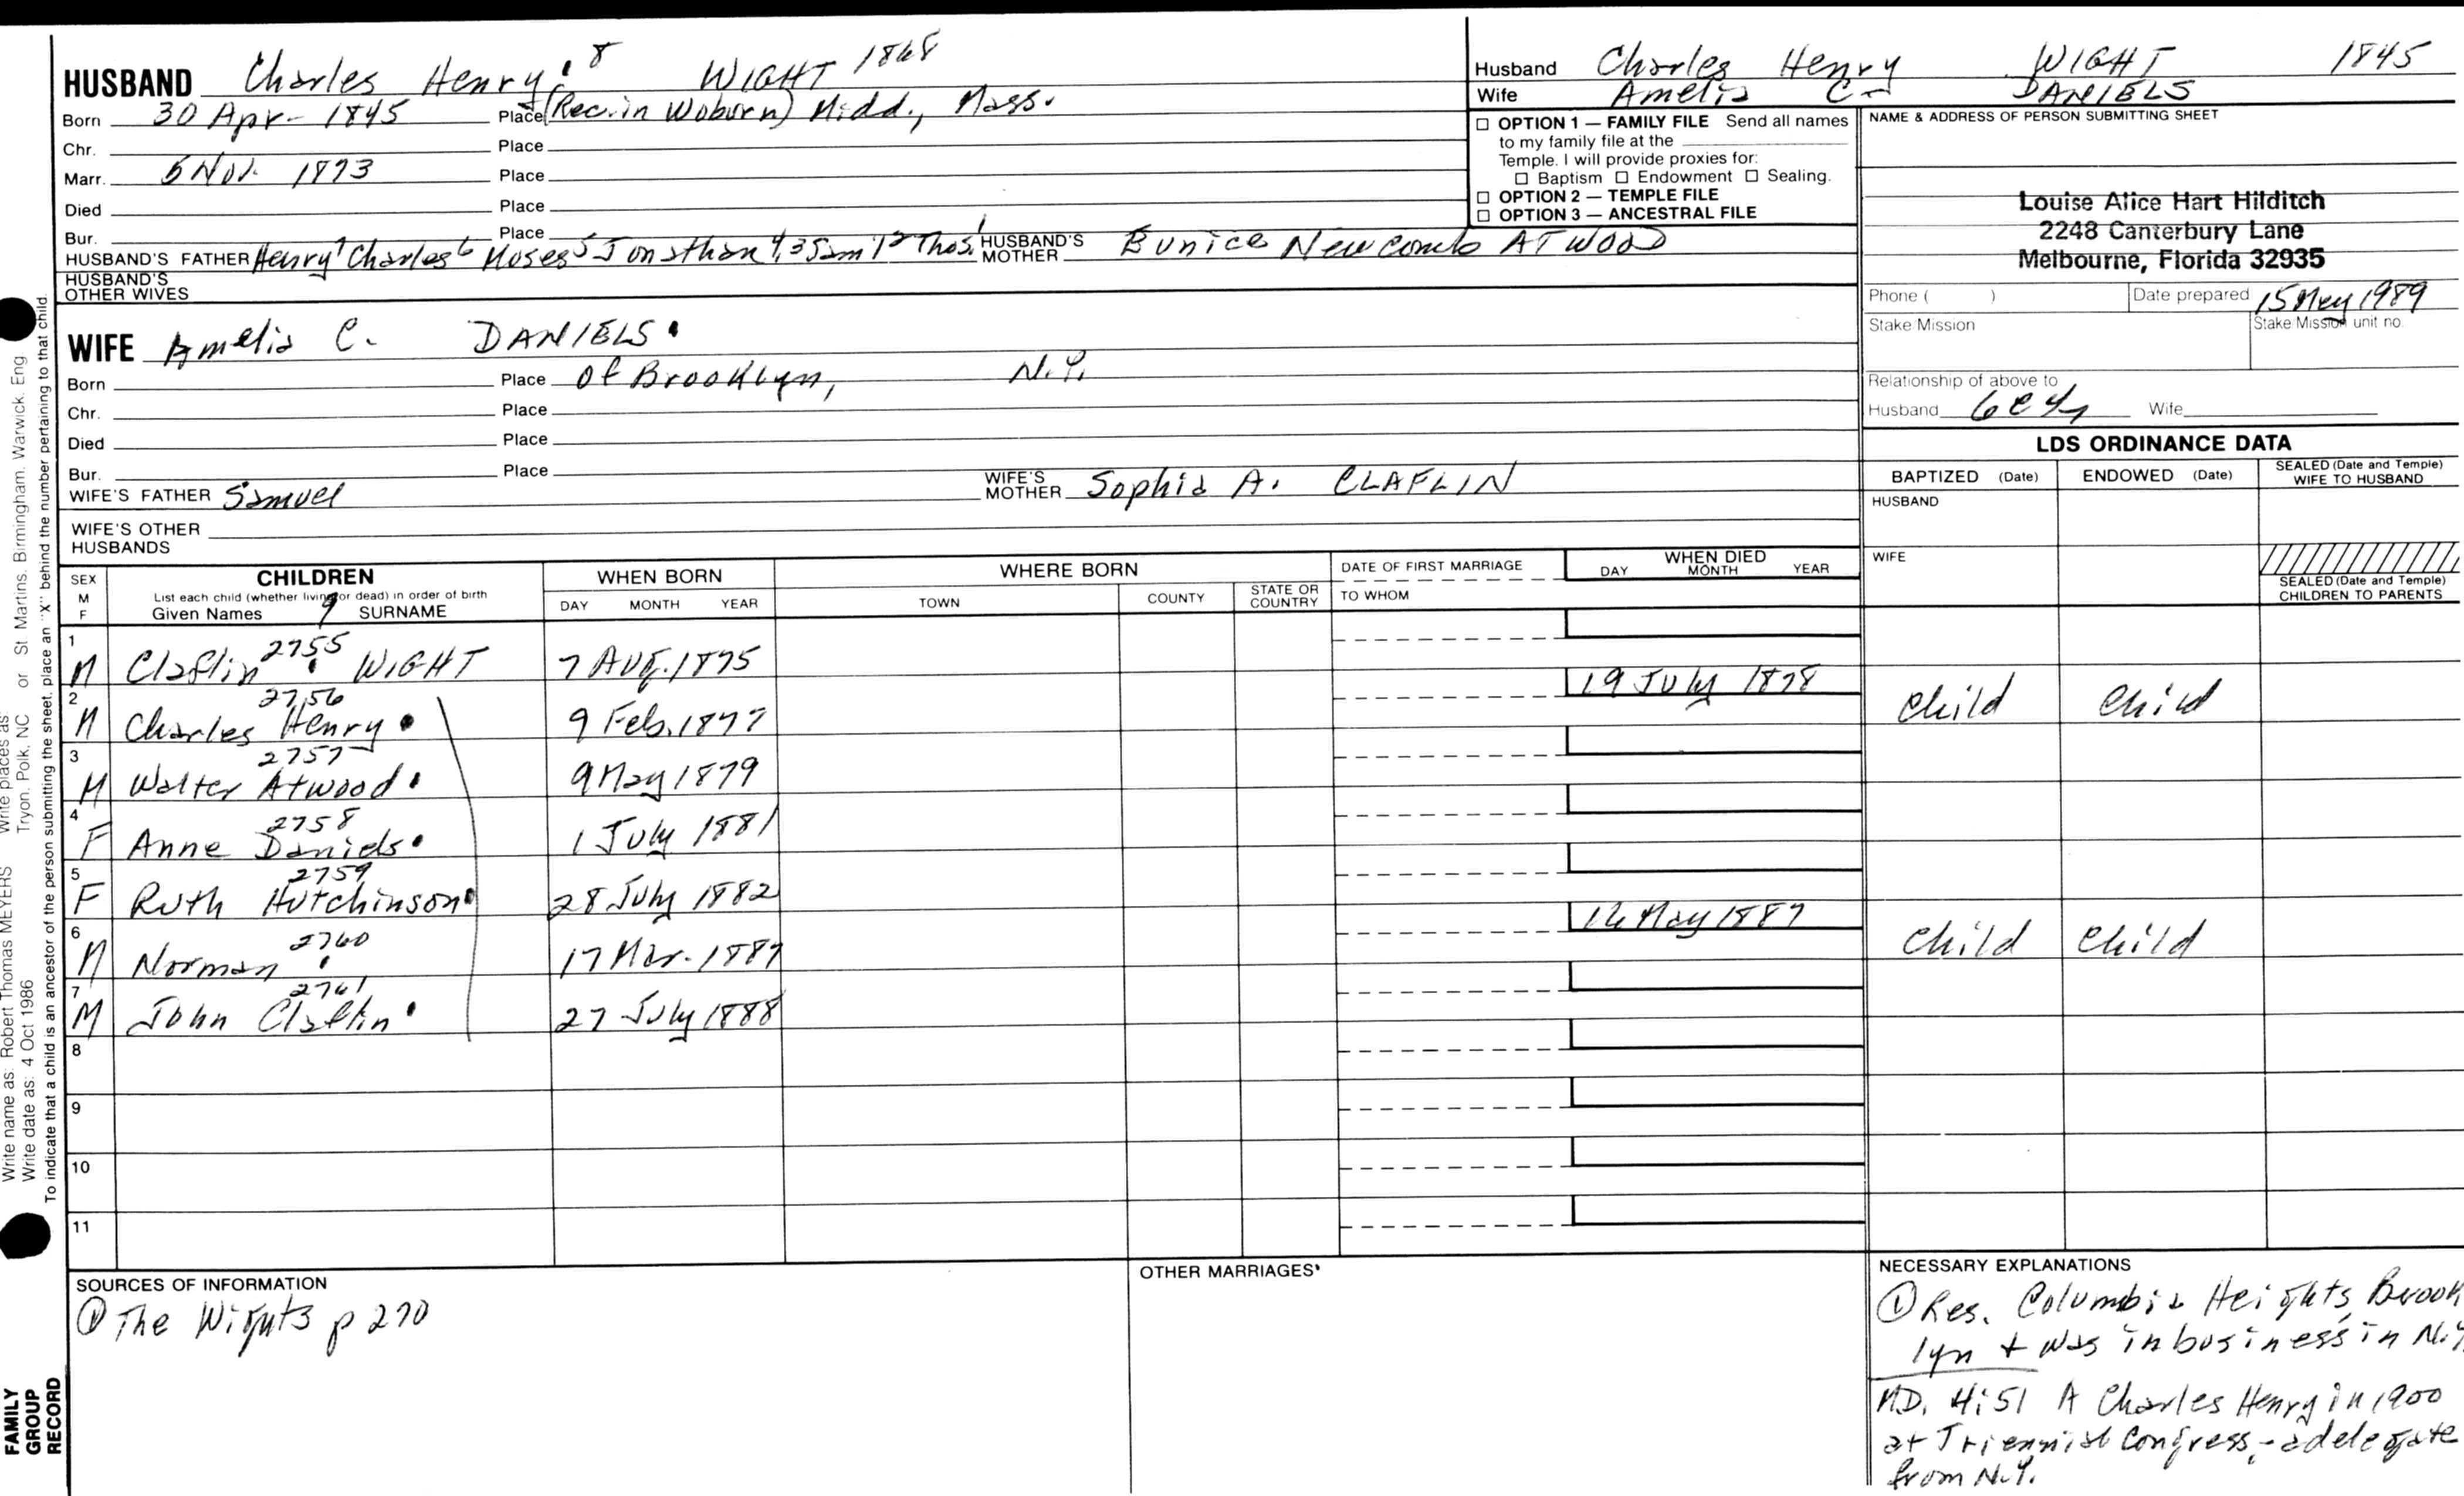 HUSBAND Charles Henry 8 WIGHT 1868
Born 30 Apr. 1845 Place (Rec. in Woburn) Midd., Mass.
Chr. Place
Marr. 5 Nov. 1873 Place
Died Place
Bur. Place
HUSBAND'S FATHER Henry7 Charles6 Moses5 Jonathan4,3 Sam'l2 Thos.1 HUSBAND'S MOTHER Eunice Newcomb ATWOOD
HUSBAND'S OTHER WIVES
WIFE Amelia C. DANIELS.
Born Place of Brooklyn, N.Y.
Chr. Place
Died Place
Bur. Place
WIFE'S FATHER Samuel WIFE'S MOTHER Sophia A. CLAFLIN
WIFE'S OTHER HUSBANDS
Husband Charles Henry WIGHT 1845
Wife Amelia C. DANIELS
☐ OPTION 1 — FAMILY FILE Send all names
to my family file at the
Temple. I will provide proxies for:
☐ Baptism ☐ Endowment ☐ Sealing.
☐ OPTION 2 — TEMPLE FILE
☐ OPTION 3 — ANCESTRAL FILE
NAME & ADDRESS OF PERSON SUBMITTING SHEET
Louise Alice Hart Hilditch
2248 Canterbury Lane
Melbourne, Florida 32935
Phone ( ) Date prepared 15 May 1989
Stake/Mission Stake/Mission unit no.
Relationship of above to
Husband 6c4r Wife
LDS ORDINANCE DATA
BAPTIZED (Date) ENDOWED (Date) SEALED (Date and Temple) WIFE TO HUSBAND
HUSBAND
WIFE
SEALED (Date and Temple) CHILDREN TO PARENTS
SEX M F CHILDREN WHEN BORN WHERE BORN DATE OF FIRST MARRIAGE WHEN DIED
List each child (whether living or dead) in order of birth
Given Names 9 SURNAME DAY MONTH YEAR TOWN COUNTY STATE OR COUNTRY TO WHOM DAY MONTH YEAR
1 M Claflin 2755 WIGHT 7 Aug. 1875
2 M Charles Henry 2756 9 Feb. 1877 19 July 1878 Child Child
3 M Walter Atwood 2757 9 May 1879
4 F Anne Daniels 2758 1 July 1881
5 F Ruth Hutchinson 2759 28 July 1882
6 M Norman 2760 17 Mar. 1887 16 May 1887 Child Child
7 M John Claflin 2761 27 July 1888
8
9
10
11
SOURCES OF INFORMATION
① The Wights p 270
OTHER MARRIAGES
NECESSARY EXPLANATIONS
① Res. Columbia Heights, Brook
lyn + was in business in N.Y.
MD. 4:51 A Charles Henry in 1900
at Triennial Congress, - a delegate
from N.Y.
Write places as: Tryon, Polk, NC or St Martins, Birmingham, Warwick, Eng
Write name as: Robert Thomas MEYERS
Write date as: 4 Oct 1986
To indicate that a child is an ancestor of the person submitting the sheet, place an "X" behind the number pertaining to that child.
FAMILY
GROUP
RECORD